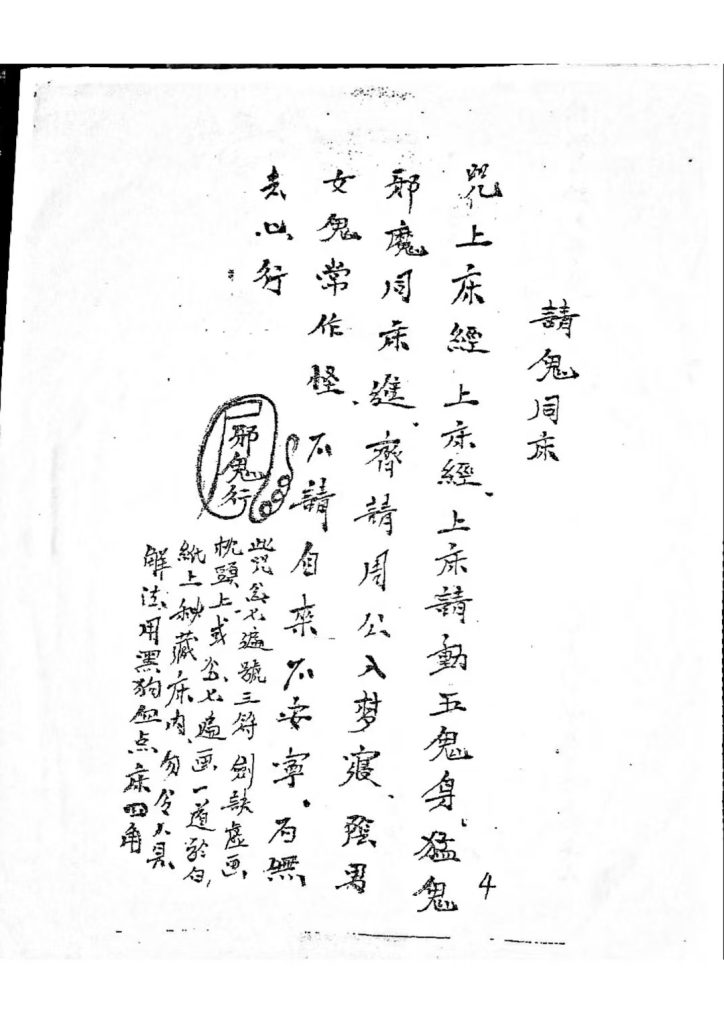 請鬼同床
咒上床經上床經、上床請動五鬼身、猛鬼
邪魔同床進、齊請周公入梦寢、陰男
女鬼常作怪、不請自来不安寧。有無
去心行
邪鬼行
此咒念七遍號三符劍訣虛画
枕頭上、或念七遍画一道於白
紙上秘藏床内、勿令人見
解法用黑狗血点床四角
4